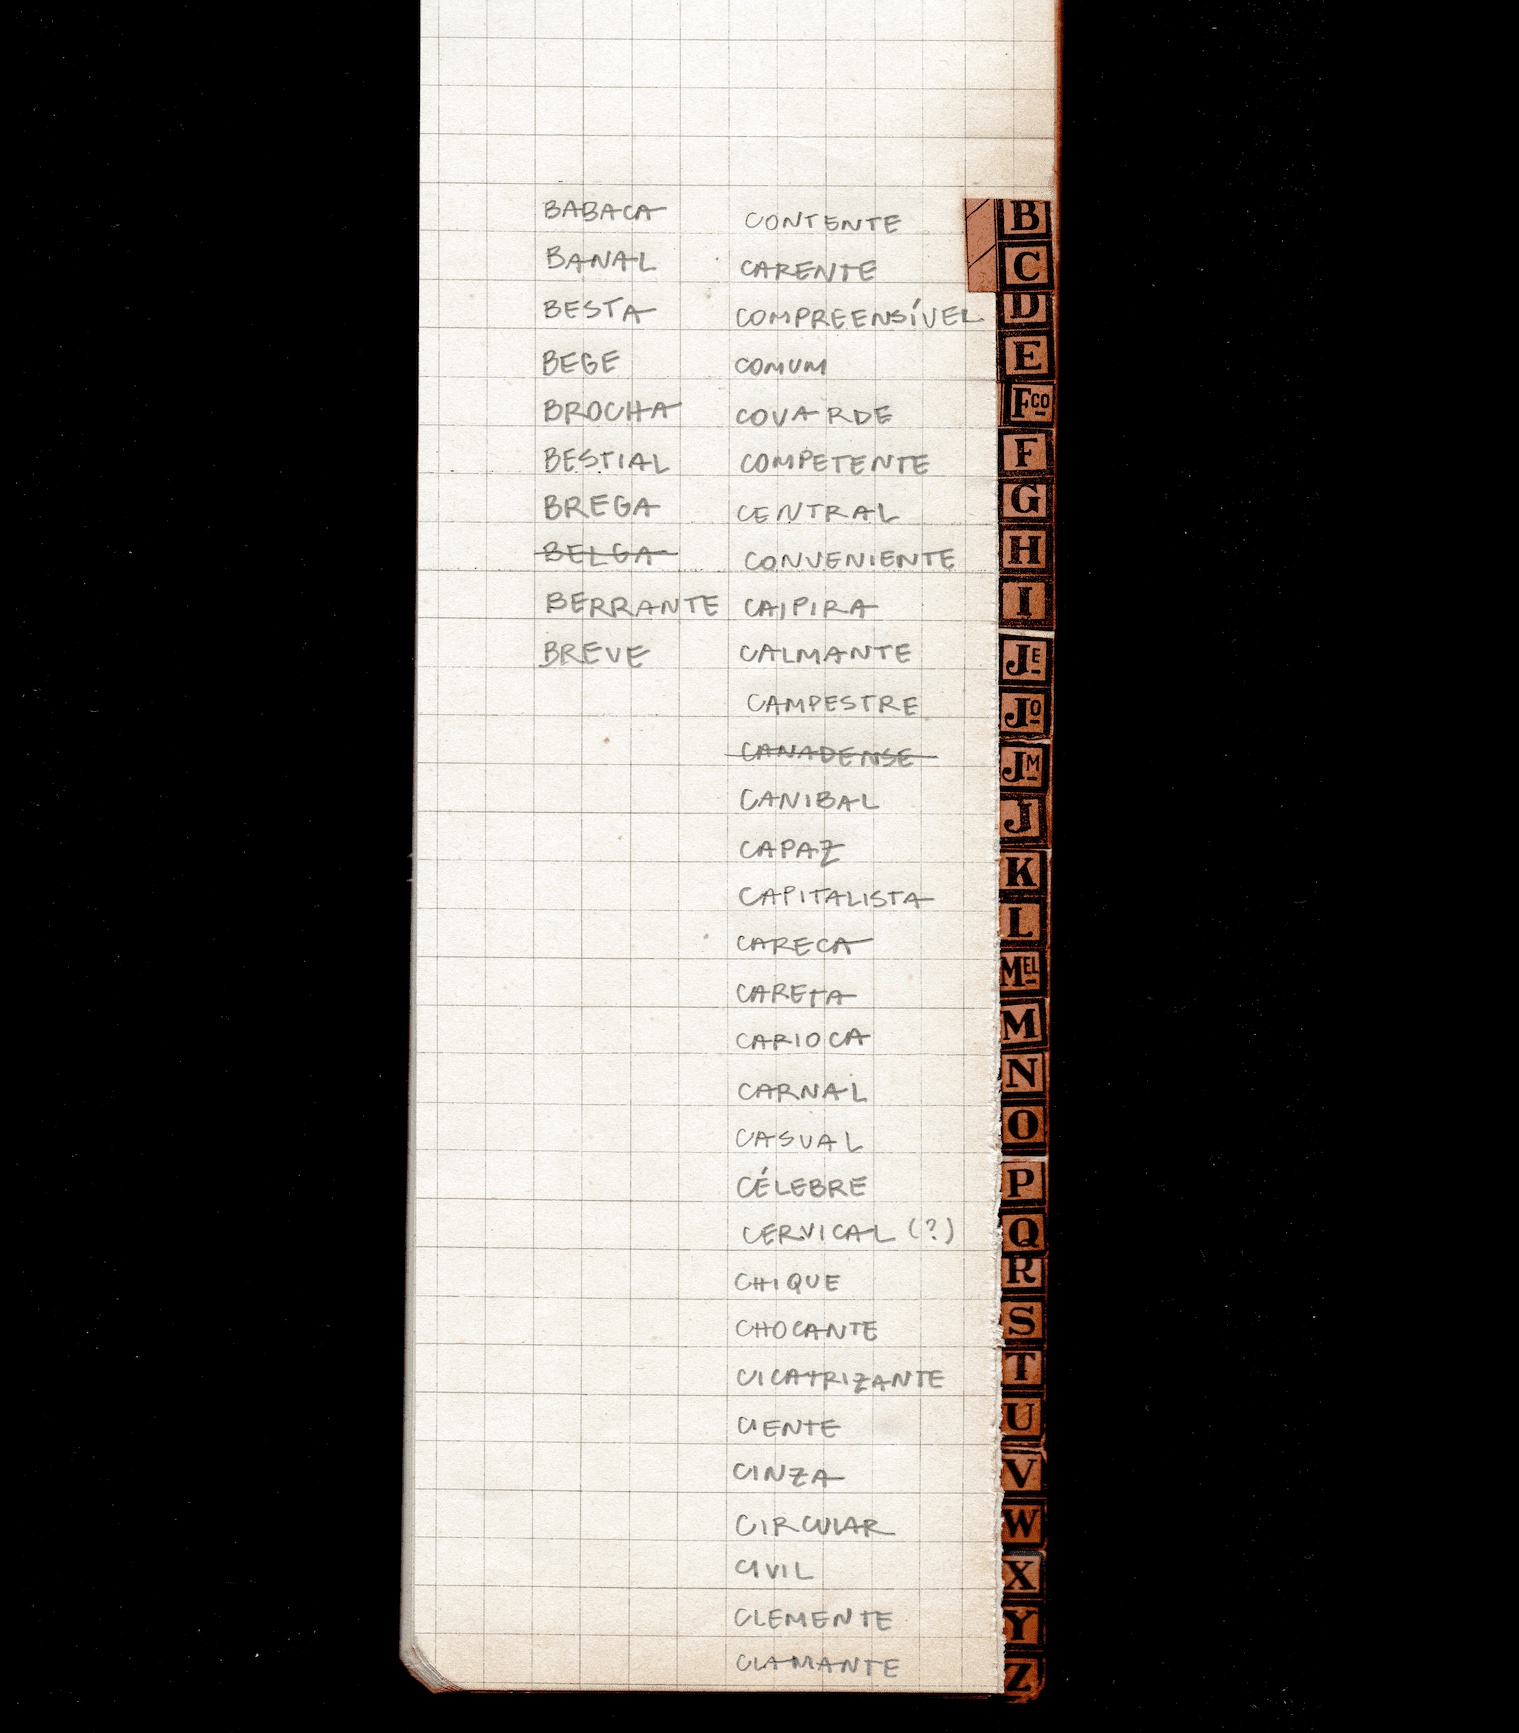 BABACA
BANAL
BESTA
BEGE
BROCHA
BESTIAL
BREGA
BELGA
BERRANTE
BREVE
CONTENTE
CARENTE
COMPREENSÍVEL
COMUM
COVARDE
COMPETENTE
CENTRAL
CONVENIENTE
CAIPIRA
CALMANTE
CAMPESTRE
CANADENSE
CANIBAL
CAPAZ
CAPITALISTA
CARECA
CARETA
CARIOCA
CARNAL
CASUAL
CÉLEBRE
CERVICAL (?)
CHIQUE
CHOCANTE
CICATRIZANTE
CIENTE
CINZA
CIRCULAR
CIVIL
CLEMENTE
CLAMANTE
B
C
D
E
Fco
F
G
H
I
JE
JO
JM
J
K
L
MEL
M
N
O
P
Q
R
S
T
U
V
W
X
Y
Z